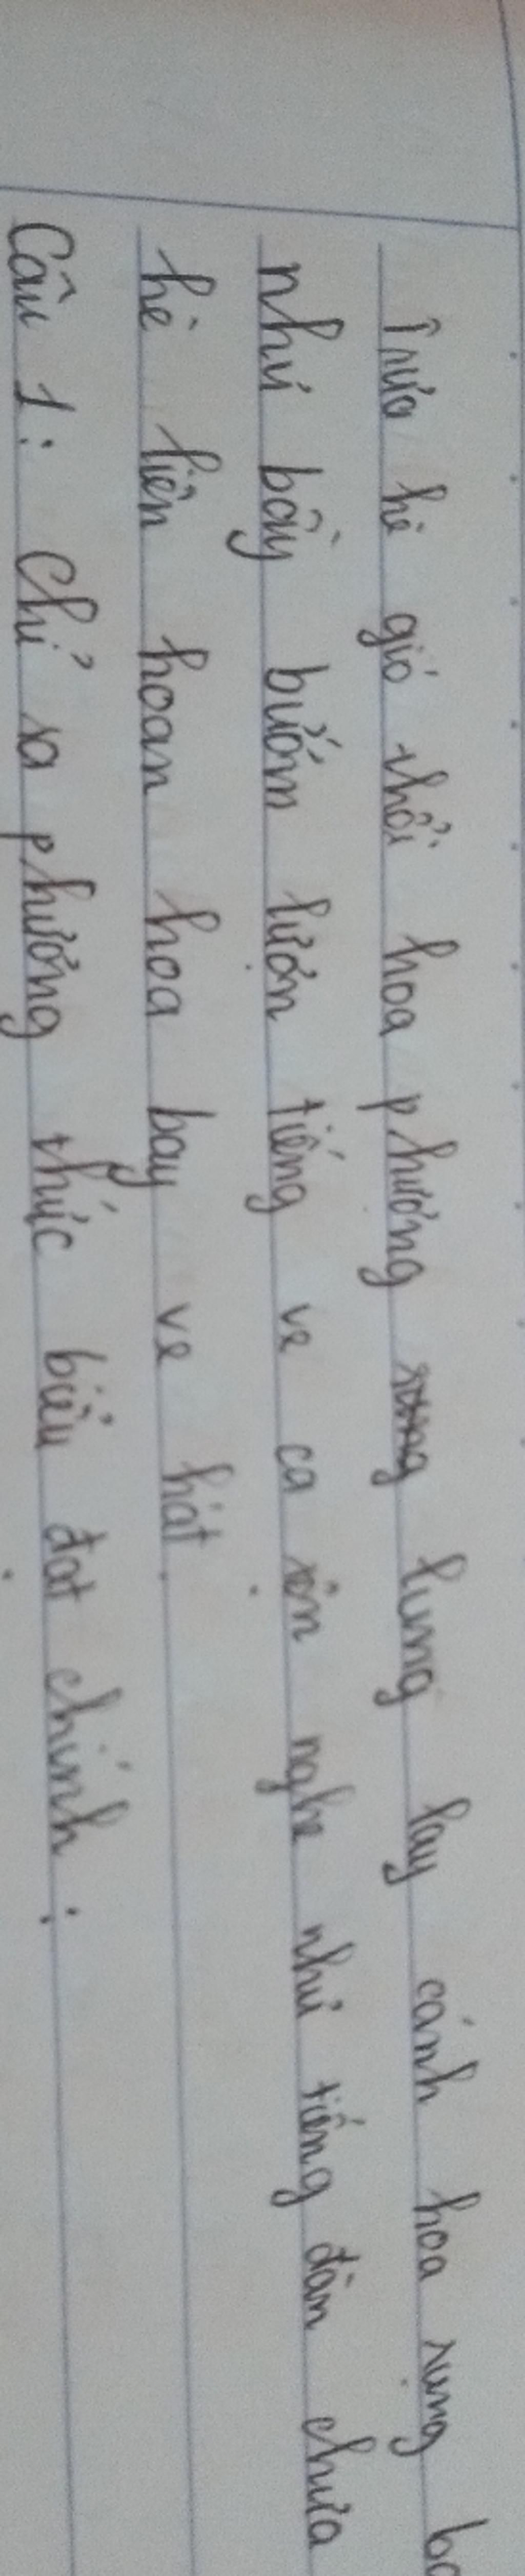 Trưa hè gió thổi hoa phượng lung lay cánh hoa rụng
như bầy bướm lượn tiếng ve ca rộn nghe như tiếng đàn chưa
hè liên hoan hoa bay ve hát.
Câu 1: Chỉ ra phương thức biểu đạt chính: